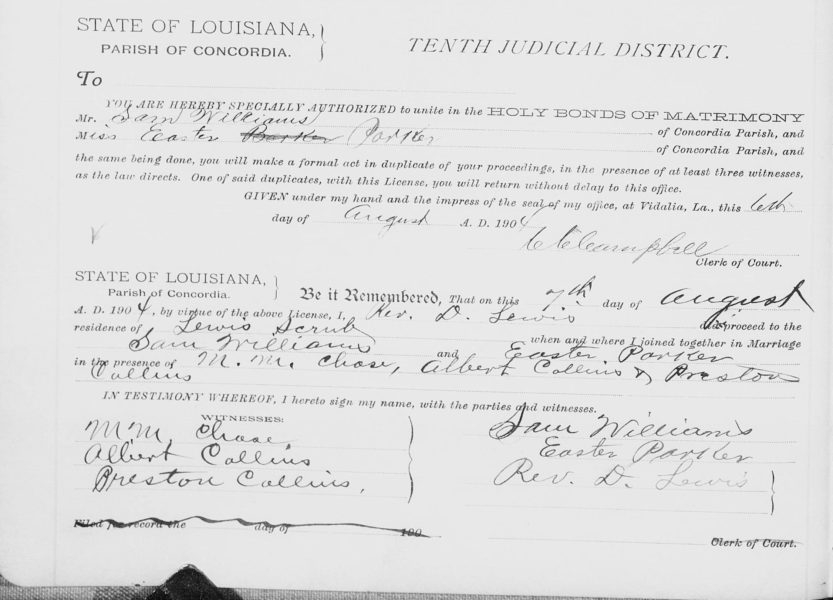 STATE OF LOUISIANA,
PARISH OF CONCORDIA.
TENTH JUDICIAL DISTRICT.
To
YOU ARE HEREBY SPECIALLY AUTHORIZED to unite in the HOLY BONDS OF MATRIMONY
Mr. Sam Williams of Concordia Parish, and
Miss Easter Barker Parker
of Concordia Parish, and
the same being done, you will make a formal act in duplicate of your proceedings, in the presence of at least three witnesses,
as the law directs. One of said duplicates, with this License, you will return without delay to this office.
GIVEN under my hand and the impress of the seal of my office, at Vidalia, La., this 6th
day of August A. D. 1904
C C Campbell
Clerk of Court.
STATE OF LOUISIANA,
Parish of Concordia.
Be it Remembered, That on this 7th day of August
A. D. 1904, by virtue of the above License, I, Rev. D. Lewis did proceed to the
residence of Lewis Scrub when and where I joined together in Marriage
Sam Williams and Easter Parker
in the presence of M. M. Chase, Albert Collins & Preston
Collins
IN TESTIMONY WHEREOF, I hereto sign my name, with the parties and witnesses.
WITNESSES:
M M Chase,
Albert Collins
Preston Collins,
Sam Williams
Easter Parker
Rev. D. Lewis
Filed for record the day of 190
Clerk of Court.